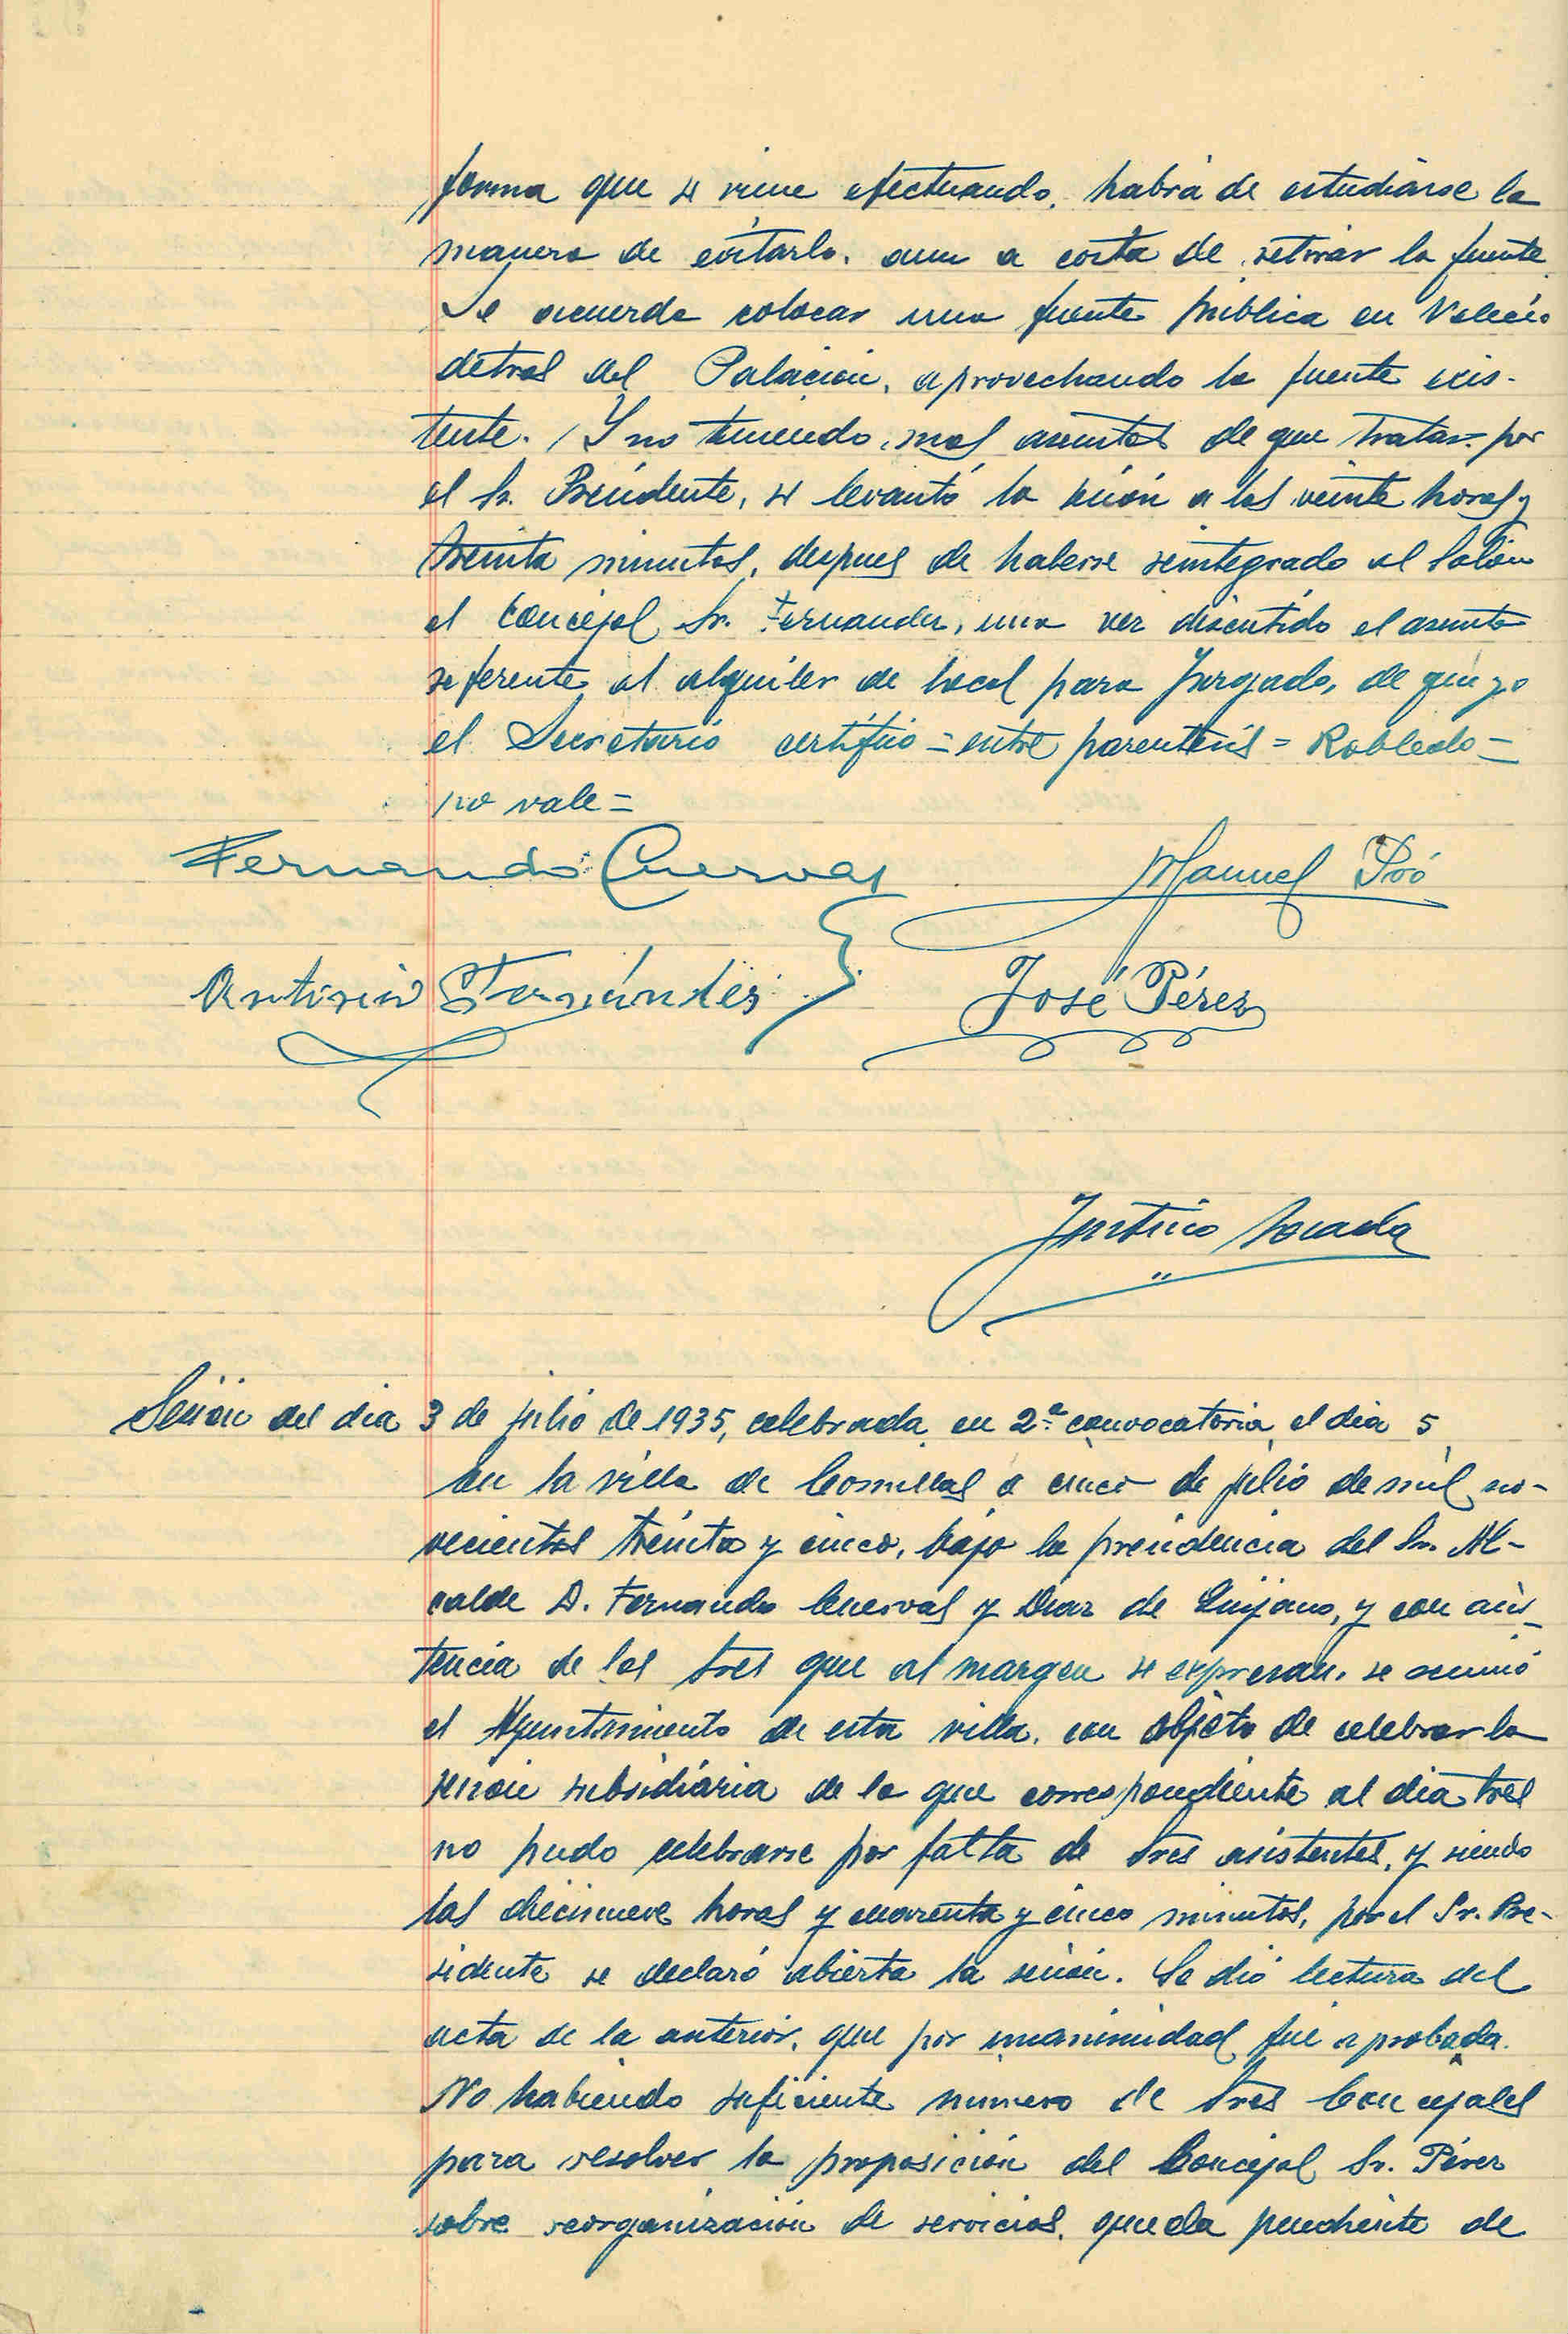 forma que se viene efectuando, habrá de estudiarse la
manera de evitarlo, aun a costa de retirar la fuente.
Se acuerda colocar una fuente pública en Velecio
detras del Palacion, aprovechando la fuente exis-
tente. / Y no teniendo mas asuntos de que tratar por
el Sr. Presidente, se levantó la sesión a las veinte horas y
treinta minutos, despues de haberse reintegrado al Salón
el Concejal Sr. Fernandez, una vez discutido el asunto
referente al alquiler de local para Juzgado, de que yo
el Secretario certifico = entre parentesis = Robledo =
no vale =
Fernando Cuevas
Manuel
Antonio Fernández
José Pérez
Sesión del dia 3 de julio de 1935, celebrada en 2ª convocatoria el dia 5
En la villa de Comillas a cinco de julio de mil no-
vecientos treinta y cinco, bajo la presidencia del Sr. Al-
calde D. Fernando Cuevas y Diaz de Quijano, y con asis-
tencia de los tres que al margen se expresan, se reunió
el Ayuntamiento de esta villa, con objeto de celebrar la
sesion subsidiaria de la que correspondiente al dia tres
no pudo celebrarse por falta de tres asistentes, y siendo
las diecinueve horas y cuarenta y cinco minutos, por el Sr. Pre-
sidente se declaró abierta la sesion. Se dió lectura del
acta de la anterior, que por unanimidad fué aprobada.
No habiendo suficiente número de tres Concejales
para resolver la proposición del Concejal Sr. Pérez
sobre reorganización de servicios, queda pendiente de